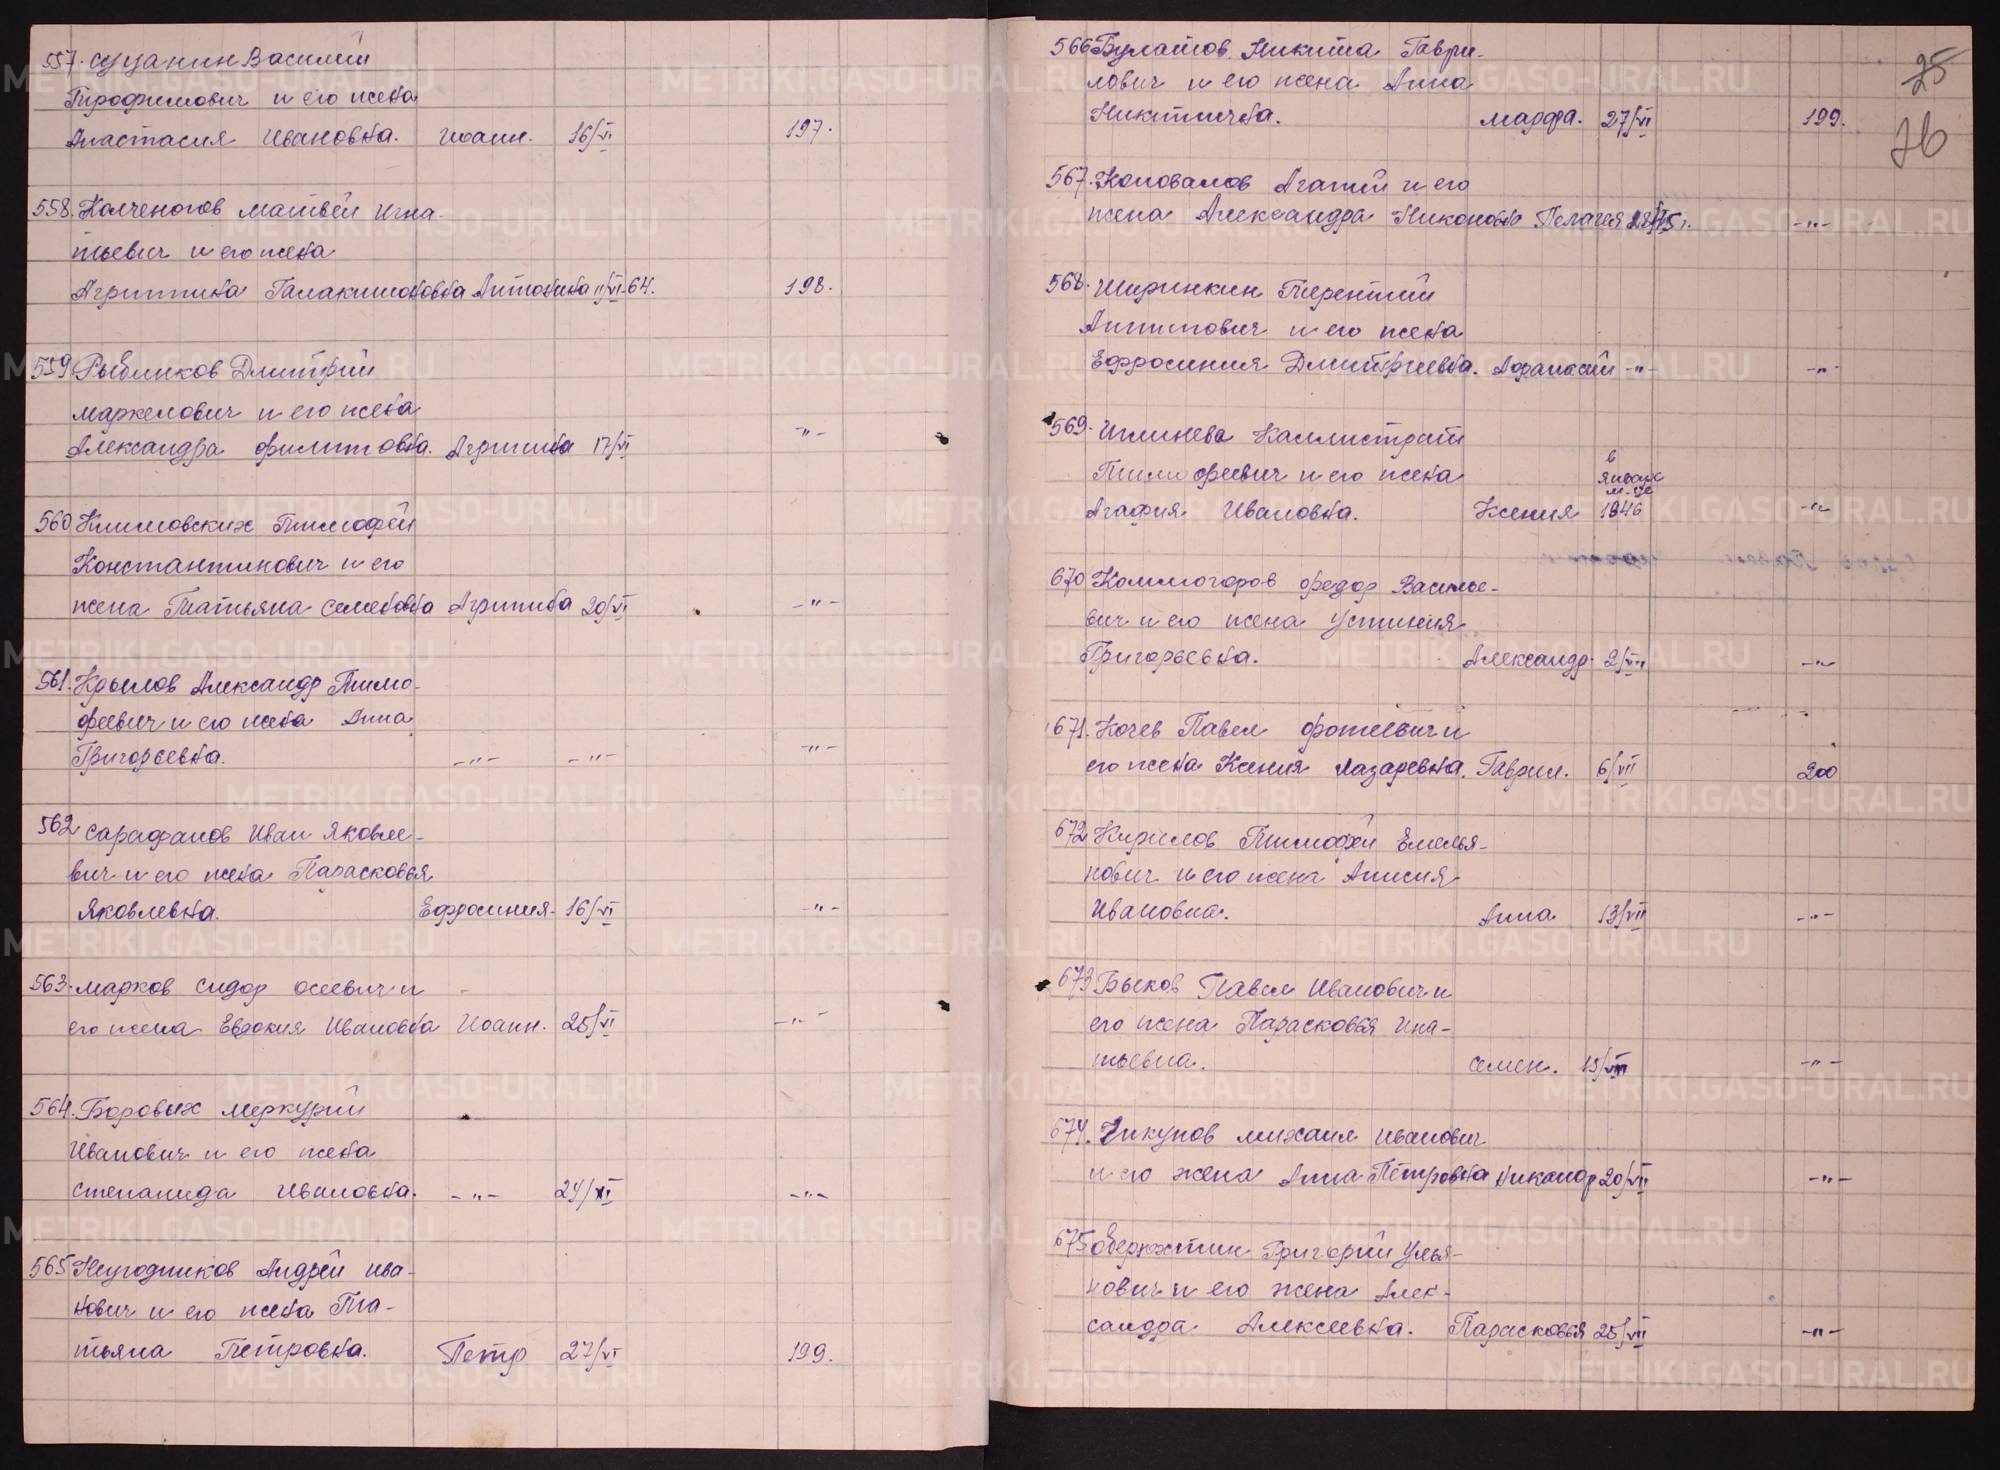 557. Суцанин Василий
Трофимович и его жена
Анастасия Ивановна. Иоанн. 16/VI 197.
558. Колченогов Матвей Игна-
тьевич и его жена
Агриппина Галактионовна Антонина 11/VI-64. 198.
559 Рыбников Дмитрий
Маркелович и его жена
Александра Филипповна. Агрипина 17/VI -"-
560 Климовских Тимофей
Константинович и его
жена Татьяна Семеновна Агрипина 20/VI -"-
561. Крылов Александр Тимо-
феевич и его жена Анна
Григорьевна. -"- -"- -"-
562 Сарафанов Иван Яковле-
вич и его жена Парасковья
Яковлевна. Ефросиния- 16/VI -"-
563. Марков Сидор Осиевич и
его жена Евдокия Ивановна Иоанн. 25/VI -"-
564. Боровых Меркурий
Иванович и его жена
Степанида Ивановна. -"- 24/VI -"-
565 Негодников Андрей Ива-
нович и его жена Та-
тьяна Петровна. Петр 27/VI 199.
25
76
566 Булатов Никита Гаври-
лович и его жена Анна
Никитична. Марфа. 27/VI 199.
567. Коновалов Агапий и его
жена Александра Никоновна Пелагея -"-
568. Ширинкин Терентий
Антипович и его жена
Ефросиния Дмитриевна. Афанасий -"- -"-
569. Каллистрат
Тимофеевич и его жена
в
январе
м-це
Агафия Ивановна. Ксения 1946 -"-
670 Колмогоров Федор Василье-
вич и его жена Устиния
Григорьевна. Александр. 2/VII -"-
671. Кочев Павел Фотиевич и
его жена Ксения Лазаревна. Гаврил. 6/VII 200
672 Кирилов Тимофей Емелья-
нович и его жена Анисия
Ивановна. Анна 13/VII -"-
673 Быков Павел Иванович и
его жена Парасковья Игна-
тьевна. Семен. 19/VII -"-
674. Чикунов Михаил Иванович
и его жена Анна Петровна Никандр 20/VII -"-
675 Оверюхтин Григорий Улья-
нович и его жена Алек-
сандра Алексеевна. Парасковья 25/VII -"-